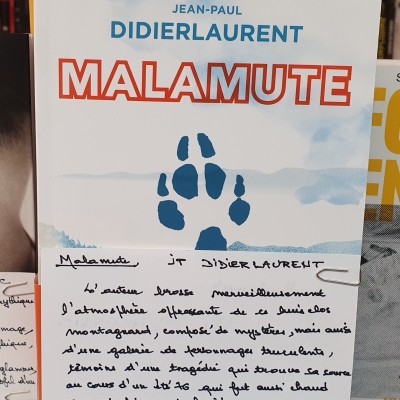 JEAN-PAUL
DIDIERLAURENT
MALAMUTE
Malamute, JT DIDIERLAURENT
L'auteur brosse merveilleusement
l'atmosphère oppressante de ce huis clos
montagnard, composé de mystères, mais aussi
d'une galerie de personnages truculents,
témoins d'une tragédie qui trouve sa source
au cours d'un été 76 qui fut aussi chaud
mythique
image,